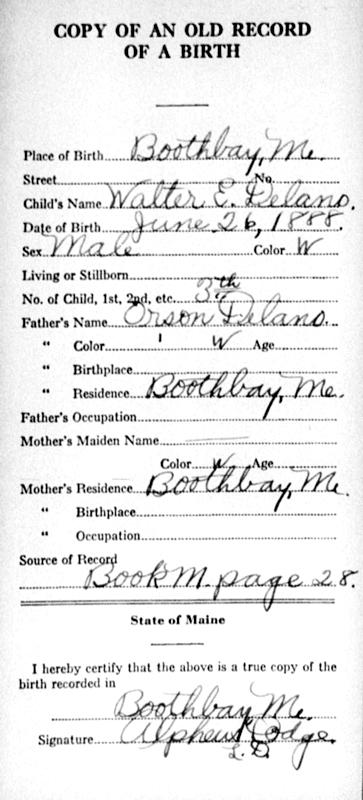 COPY OF AN OLD RECORD
OF A BIRTH
Place of Birth Boothbay, Me.
Street No.
Child's Name Walter E. Delano.
Date of Birth June 26, 1888.
Sex Male Color W
Living or Stillborn
No. of Child, 1st, 2nd, etc. 3th
Father's Name Orson Delano.
" Color W Age
" Birthplace
" Residence Boothbay, Me.
Father's Occupation
Mother's Maiden Name
Color W Age
Mother's Residence Boothbay, Me.
" Birthplace
" Occupation
Source of Record
Book M. page 28.
State of Maine
I hereby certify that the above is a true copy of the
birth recorded in
Boothbay Me.
Signature Alpheus Dodge.